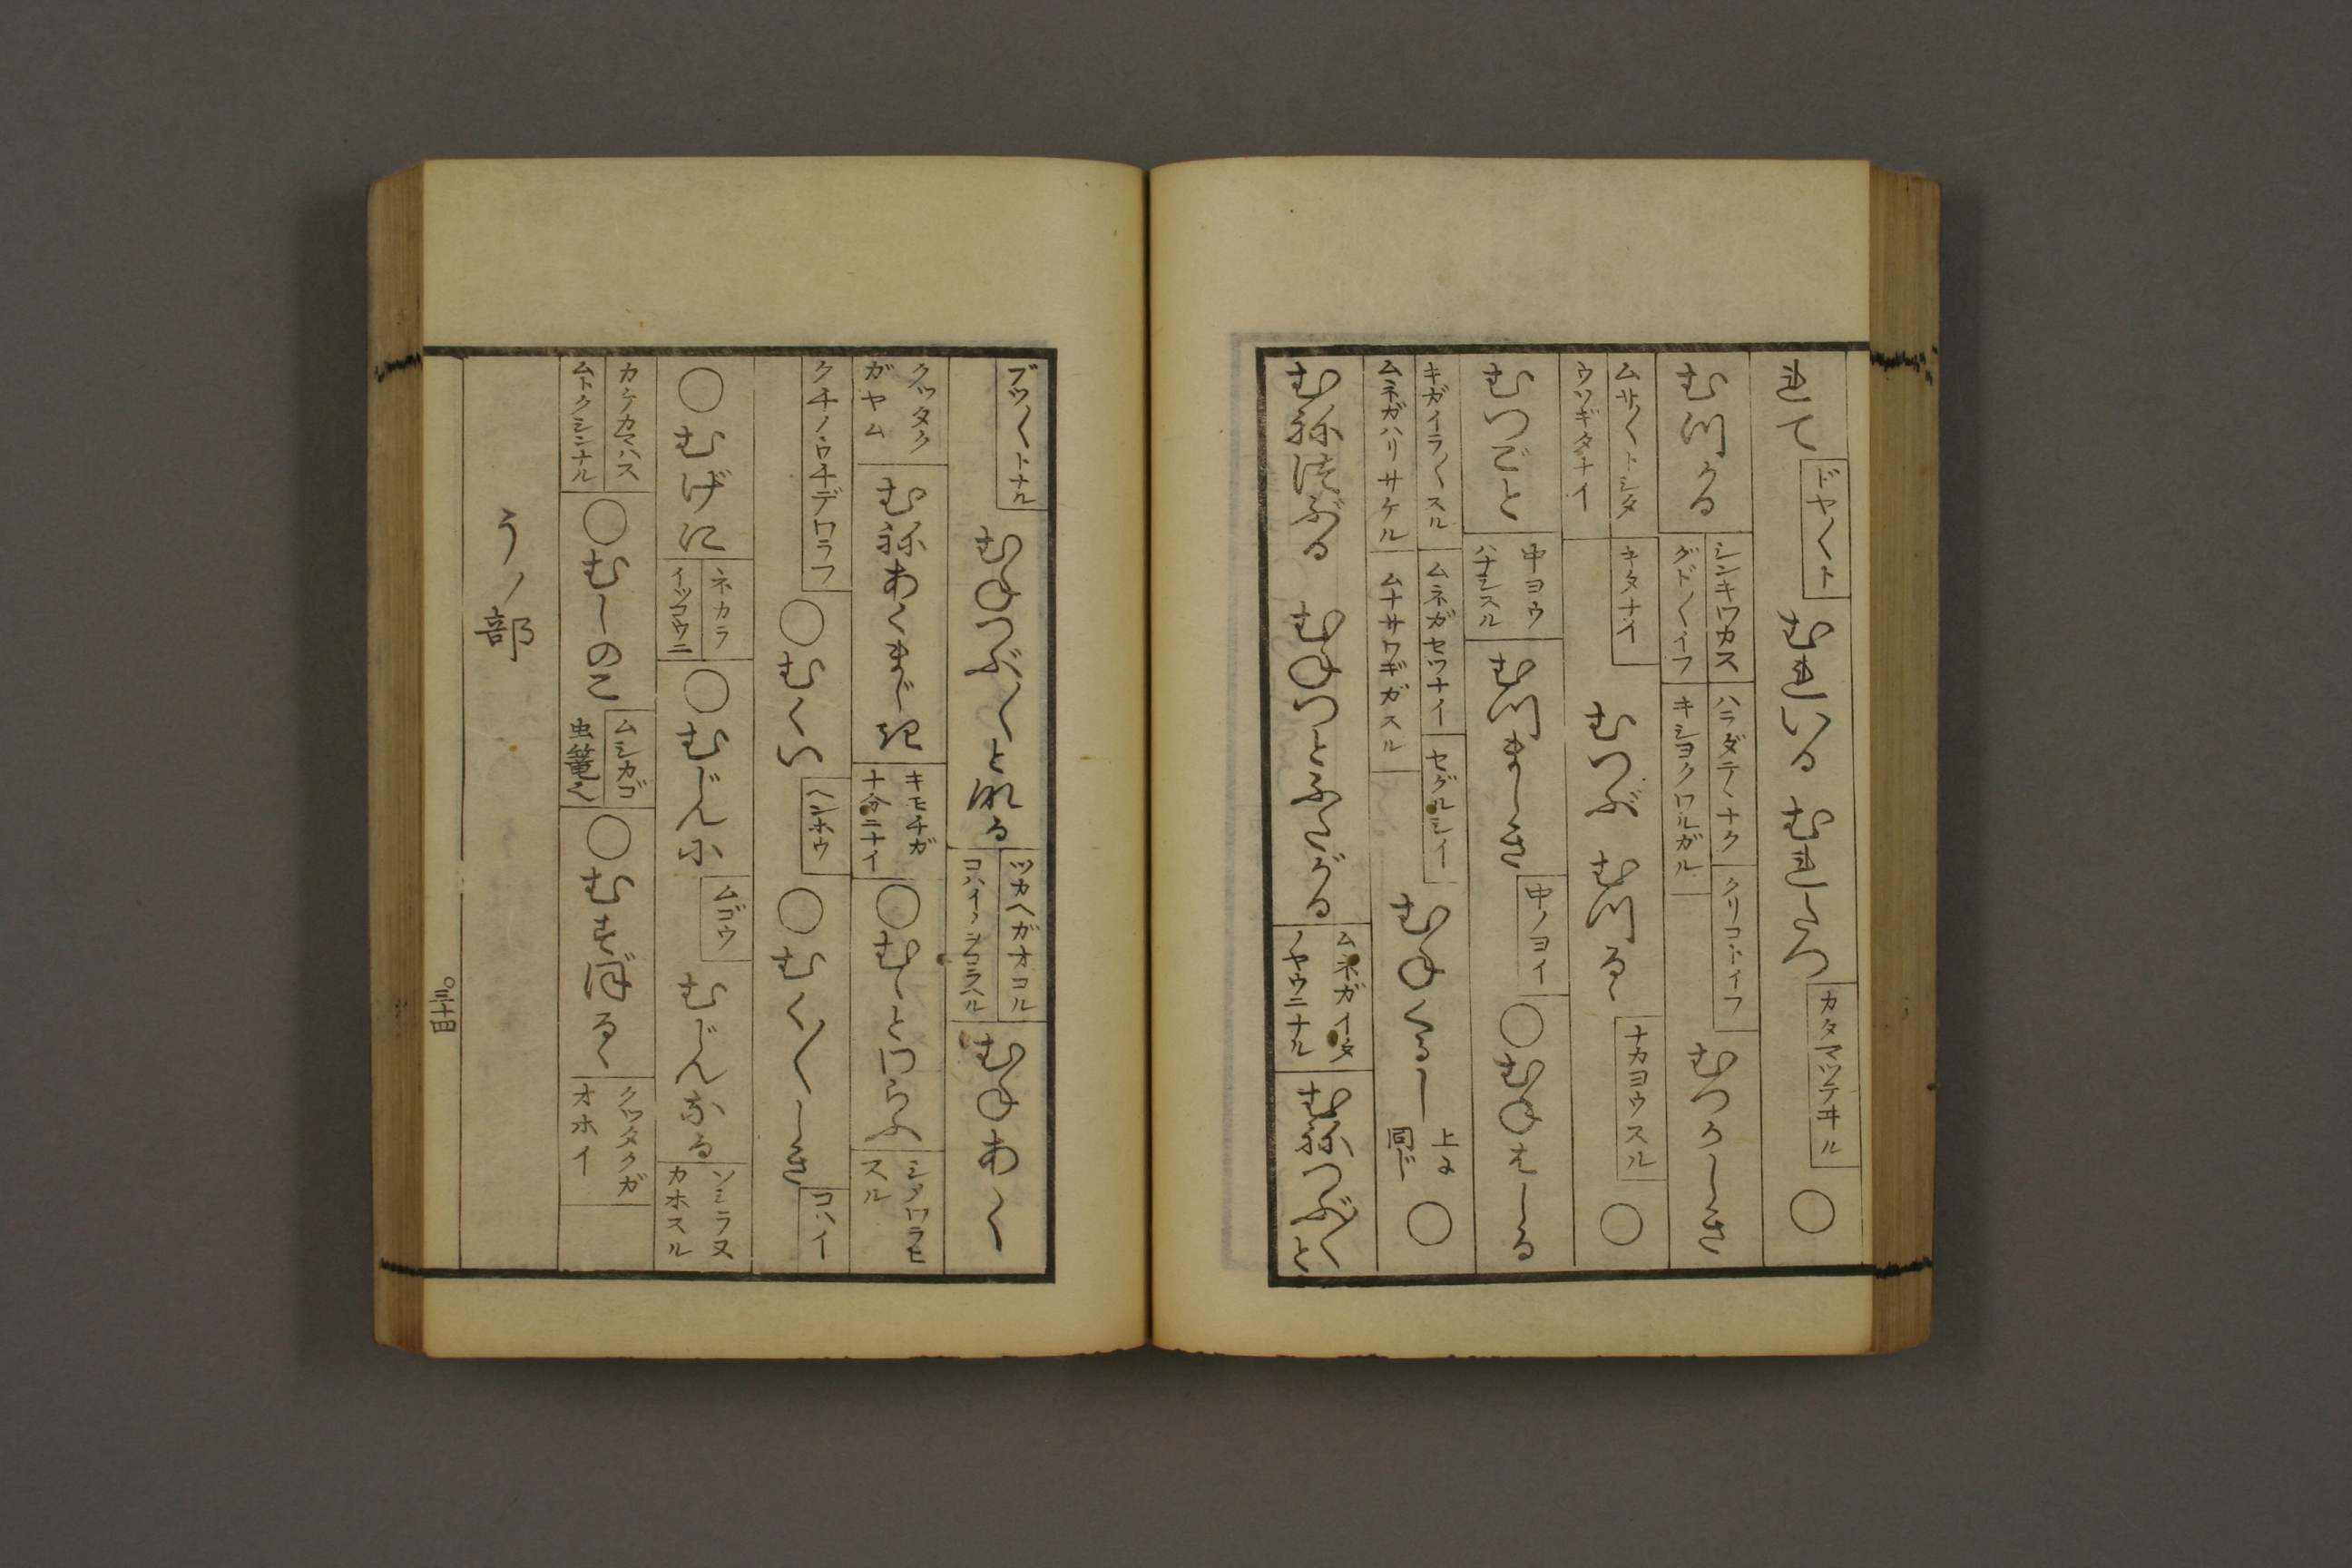 れて ドヤ〱ト むれいる むれたつ カタマツテヰル ○
むつかる シンキワカス グド〱イフ ハラダテヽナク キシヨクワルガル クリコトイフ むつかしき
ムサ〱トシタ ウソギタナイ キタナイ むつぶ むつるゝ ナカヨウスル ○
むつごと 中ヨウ ハナシスル むつましき 中ノヨイ ○むねはしる
キガイラ〱スル ムネガハリサケル ムネガセツナイ ムナサワギガスル セグルシイ むねくるし 上に同じ ○
むねつぶる むねつとふたがる ムネガイタ ノヤウニナル むねつぶ〱と
ブツ〱トナル むねつぶ〱となる ツカヘガオコル コハイヽヲコラヘル むねあく
クツタクガヤム むねあくまじき キモチガ十分ニナイ ○むゝとわらふ シノワラヒスル
クチノウチデワラフ ○むくい ヘンホウ ○むく〱しき コハイ
○むげに ネカラ イツコウニ ○むじんに ムゴウ むじんなる ソシラヌカホスル
カケカマハス ムトクシンナル ○むしのこ ムシカゴ 虫篭也 ○むすぼるゝ クツタクガオホイ
うノ部
○三十四